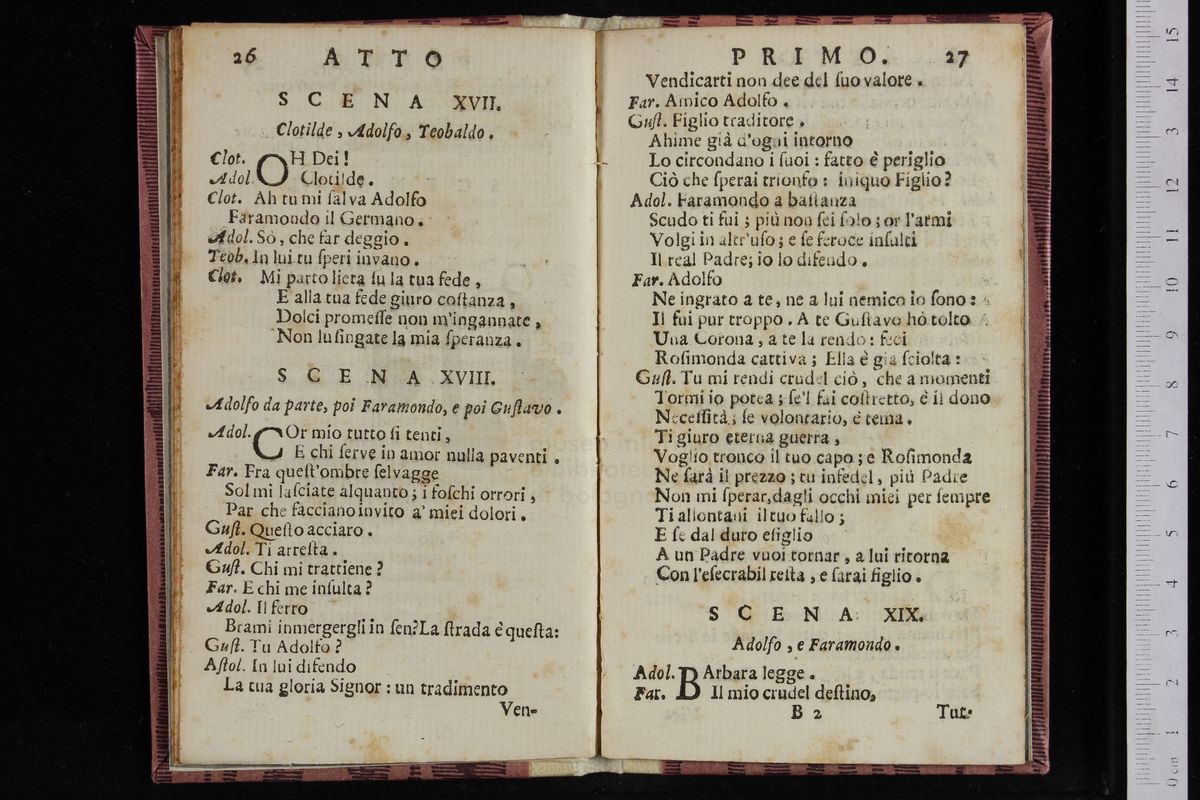 26 ATTO
SCENA XVII.
Clotilde, Adolfo, Teobaldo.
Clot. OH Dei!
Adol. Clotilde.
Clot. Ah tu mi ſalva Adolfo
Faramondo il Germano.
Adol. Sò, che far deggio.
Teob. In lui tu ſperi invano.
Clot. Mi parto lieta ſu la tua fede,
E alla tua fede giuro coſtanza,
Dolci promeſſe non m'ingannate,
Non luſingate la mia ſperanza.
SCENA XVIII.
Adolfo da parte, poi Faramondo, e poi Guſtavo.
Adol. COr mio tutto ſi tenti,
E chi ſerve in amor nulla paventi.
Far. Fra queſt'ombre ſelvagge
Sol mi laſciate alquanto; i foſchi orrori,
Par che facciano invito a' miei dolori.
Guſt. Queſto acciaro.
Adol. Ti arreſta.
Guſt. Chi mi trattiene?
Far. E chi me inſulta?
Adol. Il ferro
Brami inmergergli in ſen? La ſtrada è queſta:
Guſt. Tu Adolfo?
Aſtol. In lui difendo
La tua gloria Signor: un tradimento
Ven-
PRIMO. 27
Vendicarti non dee del ſuo valore.
Far. Amico Adolfo.
Guſt. Figlio traditore.
Ahime già d'ogni intorno
Lo circondano i ſuoi: fatto è periglio
Ciò che ſperai trionfo: iniquo Figlio?
Adol. Faramondo a baſtanza
Scudo ti fui; più non ſei ſolo; or l'armi
Volgi in altr'uſo; e ſe feroce inſulti
Il real Padre; io lo difendo.
Far. Adolfo
Ne ingrato a te, ne a lui nemico io ſono:
Il fui pur troppo. A te Guſtavo hò tolto
Una Corona, a te la rendo: feci
Roſimonda cattiva; Ella è gia ſciolta:
Guſt. Tu mi rendi crudel ciò, che a momenti
Tormi io potea; ſe'l fai coſtretto, è il dono
Neceſſità; ſe volontario, è tema.
Ti giuro eterna guerra,
Voglio tronco il tuo capo; e Roſimonda
Ne ſarà il prezzo; tu infedel, più Padre
Non mi ſperar, dagli occhi miei per ſempre
Ti allontani il tuo fallo;
E ſe dal duro eſiglio
A un Padre vuoi tornar, a lui ritorna
Con l'eſecrabil teſta, e ſarai figlio.
SCENA XIX.
Adolfo, e Faramondo.
Adol. BArbara legge.
Far. Il mio crudel deſtino,
B 2 Tut-
15
14
13
12
11
10
9
8
7
6
5
4
3
2
1
0 cm